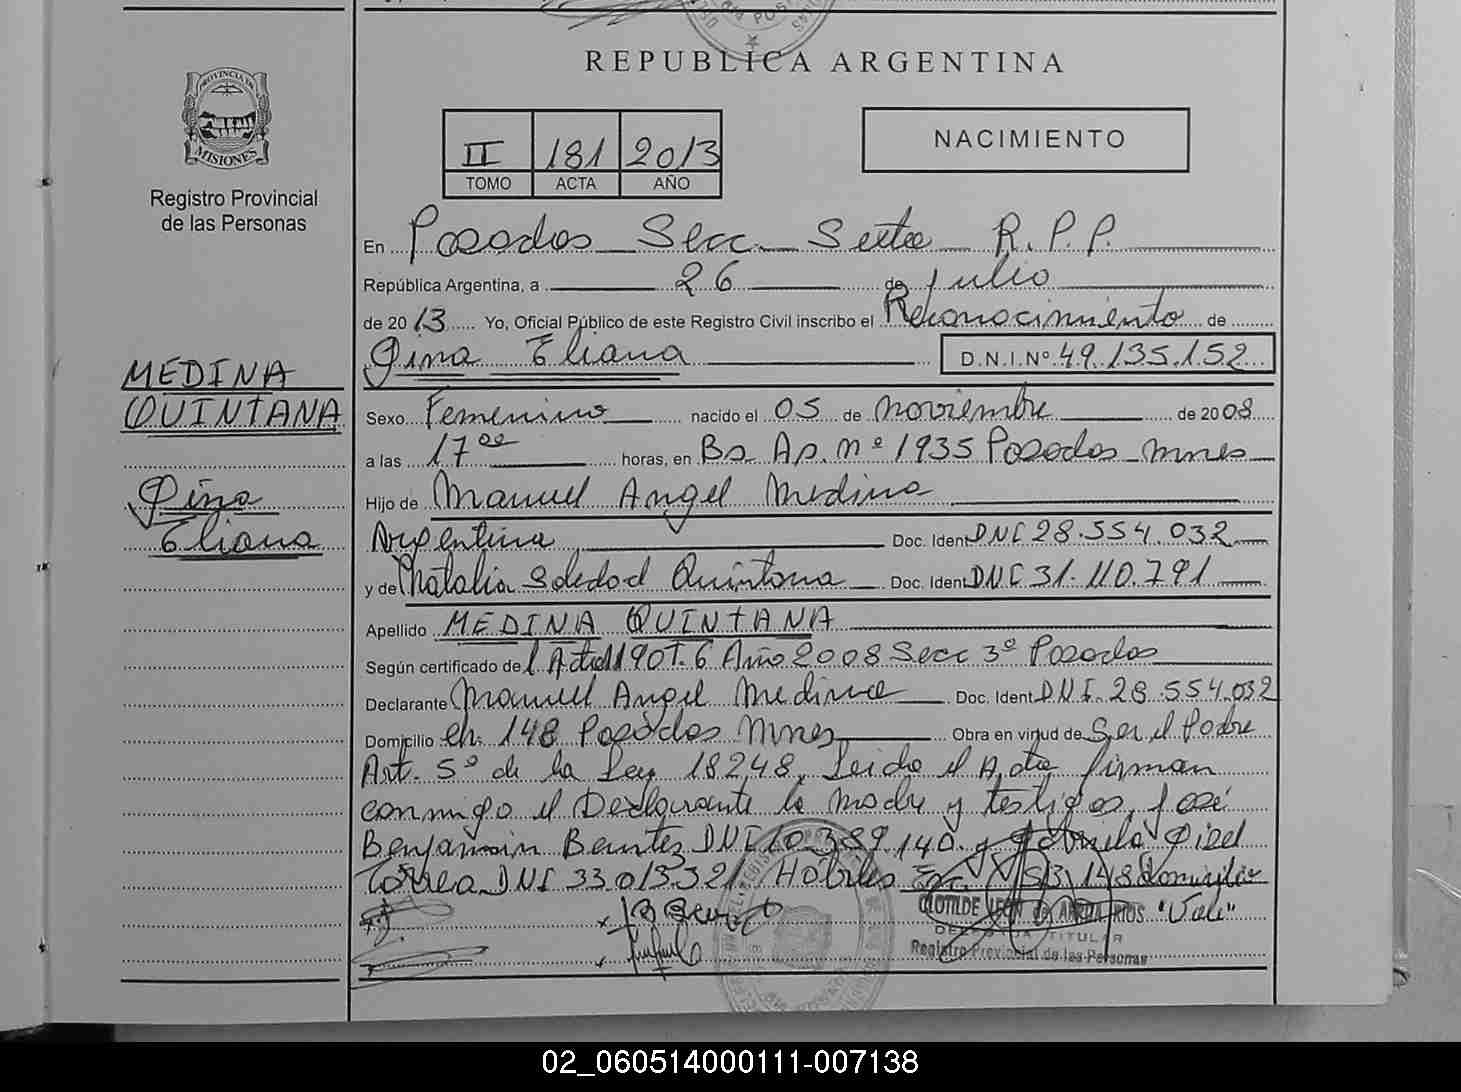 REPUBLICA ARGENTINA
PROVINCIA DE
MISIONES
Registro Provincial
de las Personas
II 181 2013
TOMO ACTA AÑO
NACIMIENTO
En Posadas Secc. Sexta R.P.P.
República Argentina, a 26 de Julio
de 2013 Yo, Oficial Público de este Registro Civil inscribo el Reconocimiento de
Gina Eliana D.N.I.Nº 49.135.152
MEDINA
QUINTANA
Gina
Eliana
Sexo Femenino nacido el 05 de noviembre de 2008
a las 17 oo horas, en Bs As. nº 1935 Posadas mnes
Hijo de Manuel Angel Medina
Argentina Doc. Ident DNI 28.554.032
y de Natalia Soledad Quintana Doc. Ident DNI 31.110.791
Apellido MEDINA QUINTANA
Según certificado del Acta 1190 T. 6 Año 2008 Secc 3º Posadas
Declarante Manuel Angel Medina Doc. Ident DNI 28.554.032
Domicilio ch. 148 Posadas Mnes Obra en virtud de Ser el Padre
Art. 5º de la Ley 18248, Leida el Acta firman
conmigo el Declarante la madre y testigos, José
Benjamin Benitez DNI 10.389.140. y Gisel
DNI 33013321 Hábiles 148 domicilio
"Vale"
CLOTILDE LEON
TITULAR
Registro Provincial de las Personas
02_060514000111-007138